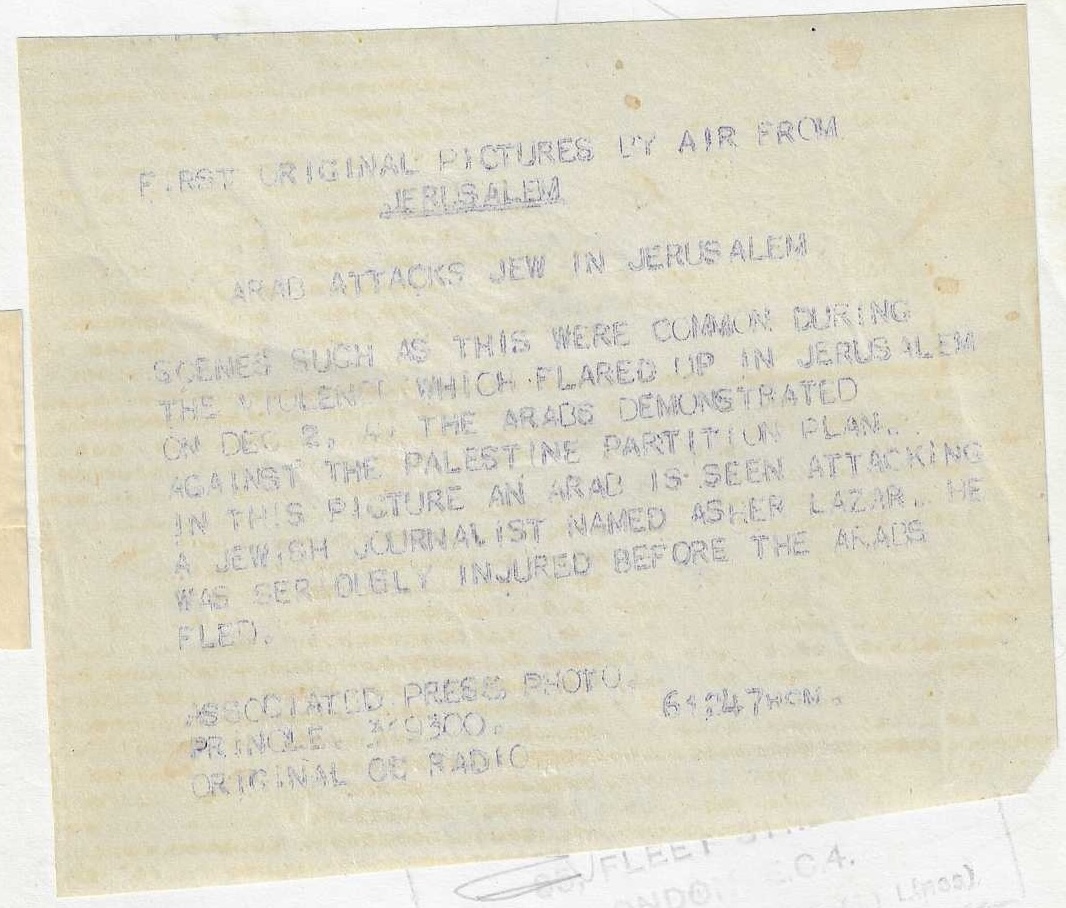 FIRST ORIGINAL PICTURES BY AIR FROM
JERUSALEM
ARAB ATTACKS JEW IN JERUSALEM
SCENES SUCH AS THIS WERE COMMON DURING
THE VIOLENCE WHICH FLARED UP IN JERUSALEM
ON DEC 2, AS THE ARABS DEMONSTRATED
AGAINST THE PALESTINE PARTITION PLAN.
IN THIS PICTURE AN ARAB IS SEEN ATTACKING
A JEWISH JOURNALIST NAMED ASHER LAZAR. HE
WAS SERIOUSLY INJURED BEFORE THE ARABS
FLED.
ASSOCIATED PRESS PHOTO.
PRINGLE. 319300. 61247
ORIGINAL OF RADIO
85, FLEET
E.C.4.